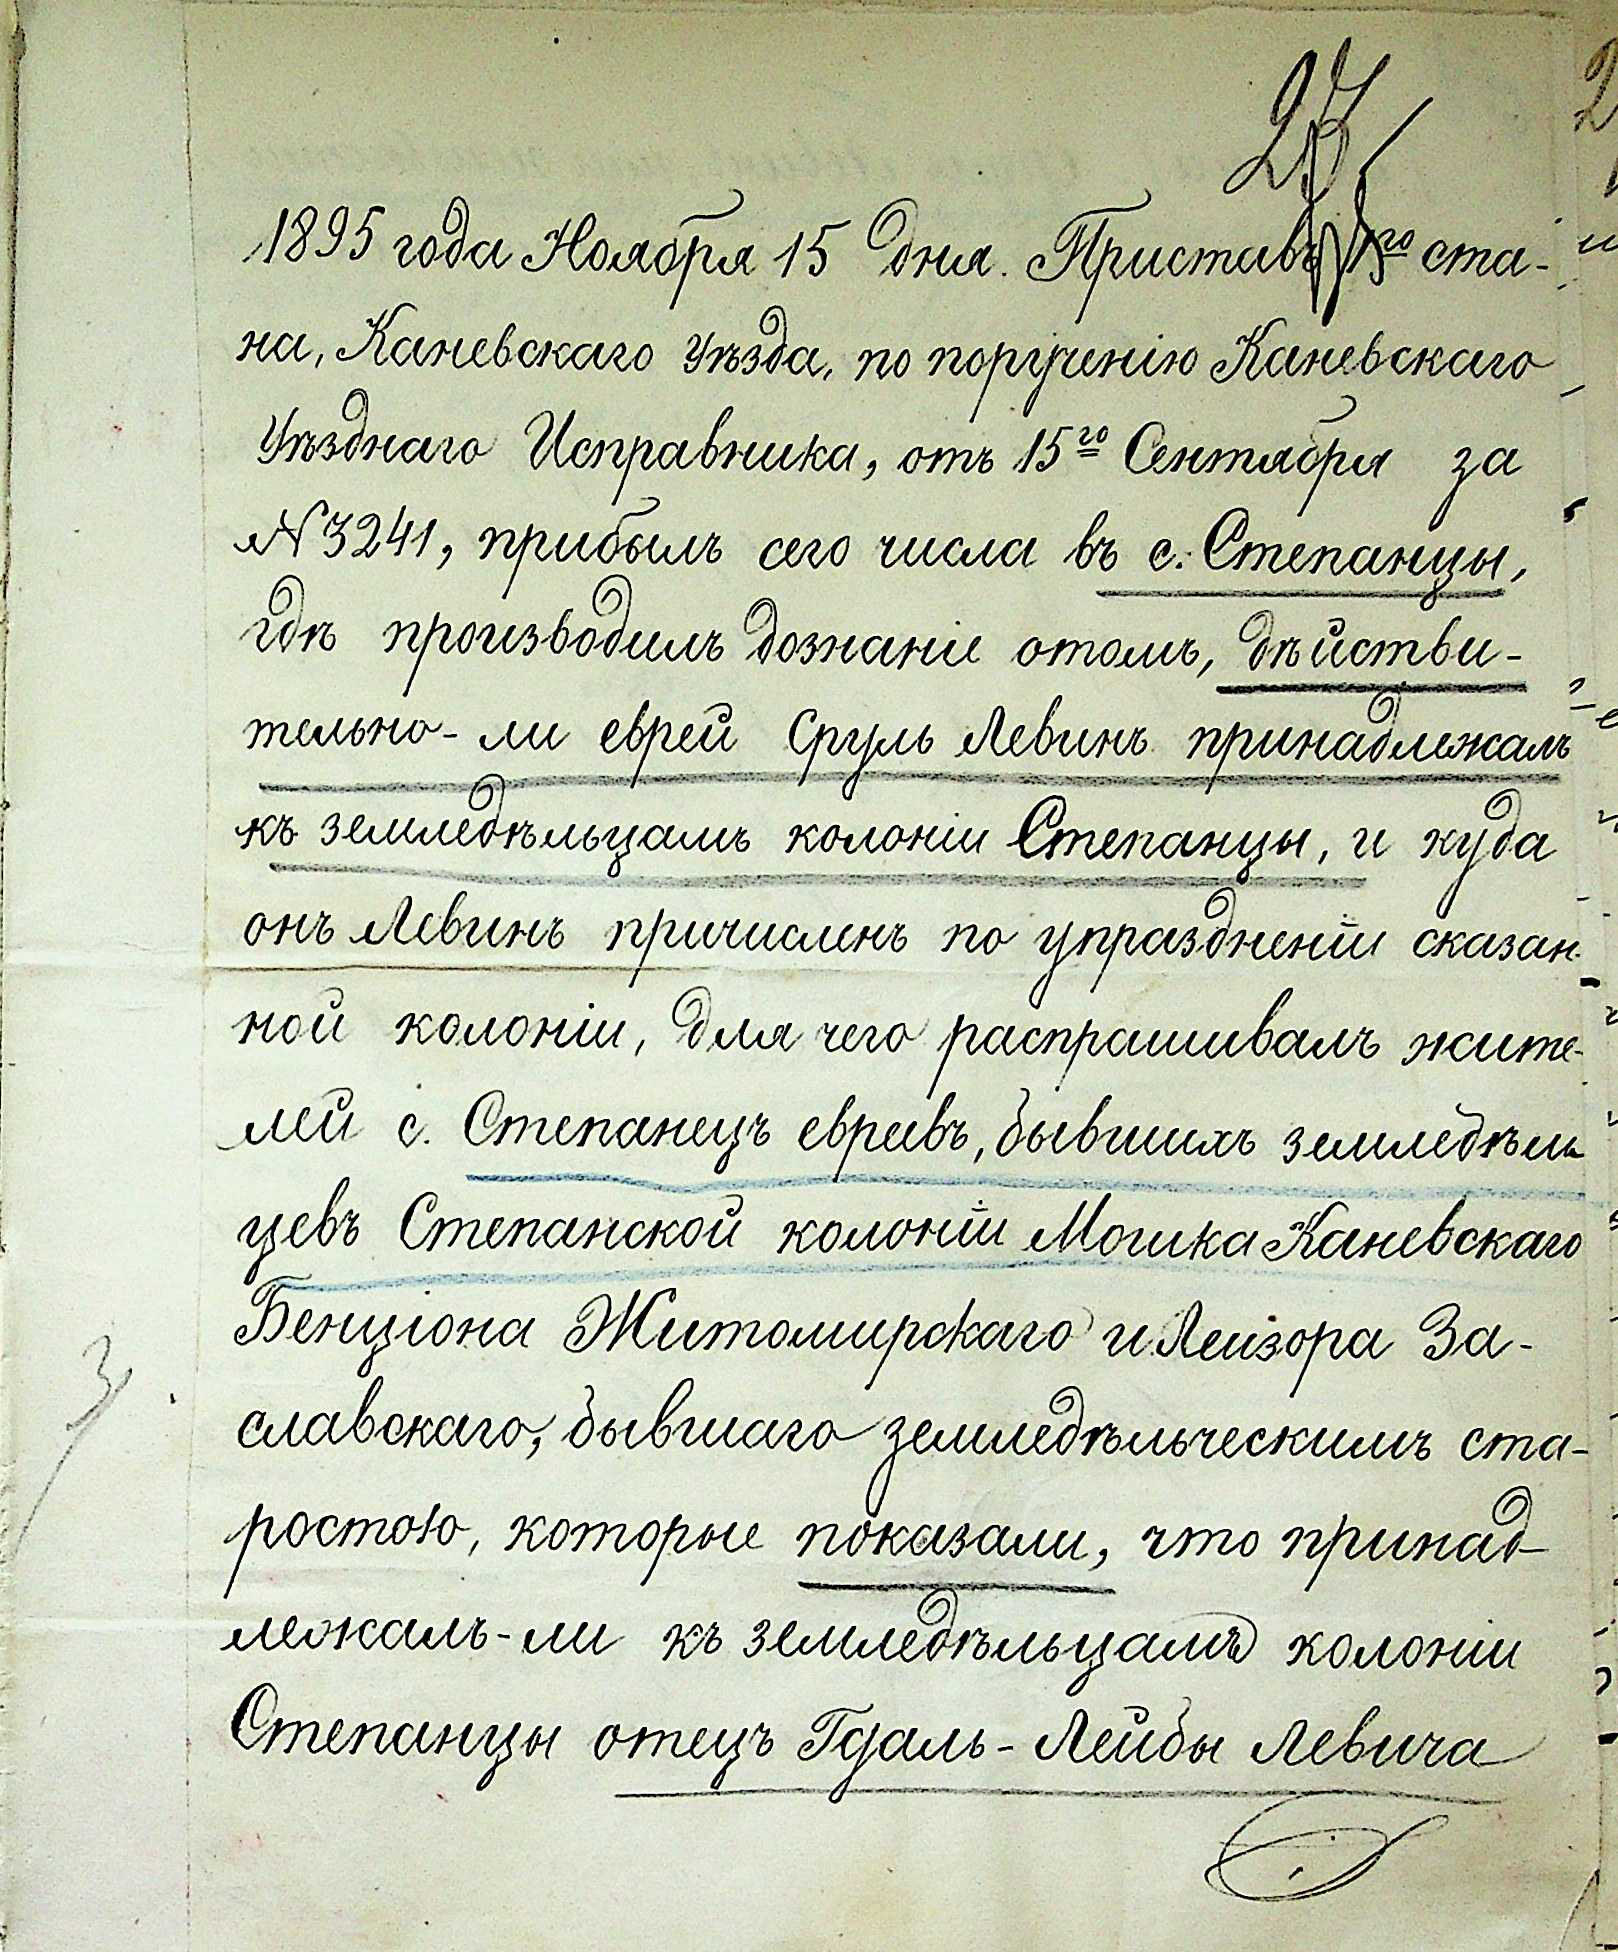 27
1895 года Ноября 15 Дня. Приставъ го ста-
на, Каневскаго Уѣзда, по порученію Каневскаго
Уѣзднаго Исправника, отъ 15го Сентября за
№ 3241, прибылъ сего числа въ с. Степанцы,
гдѣ производилъ дознаніе отомъ, дѣйстви-
тельно-ли еврей Сруль Левинъ принадлежалъ
къ земледѣльцамъ колоніи Степанцы, и куда
онъ Левинъ причисленъ по упраздненіи сказан-
ной колоніи, для чего распрашивалъ жите-
лей с. Степанецъ евреевъ, бывшихъ земледѣль
цевъ Степанской колоніи Мошка Каневскаго
Бенціона Житомирскаго и Лейзора За-
славскаго, бывшаго земледѣльческимъ ста-
ростою, которые показали, что принад-
лежалъ-ли къ земледѣльцамъ колоніи
Степанцы отецъ Гдаль-Лейбы Левича
3